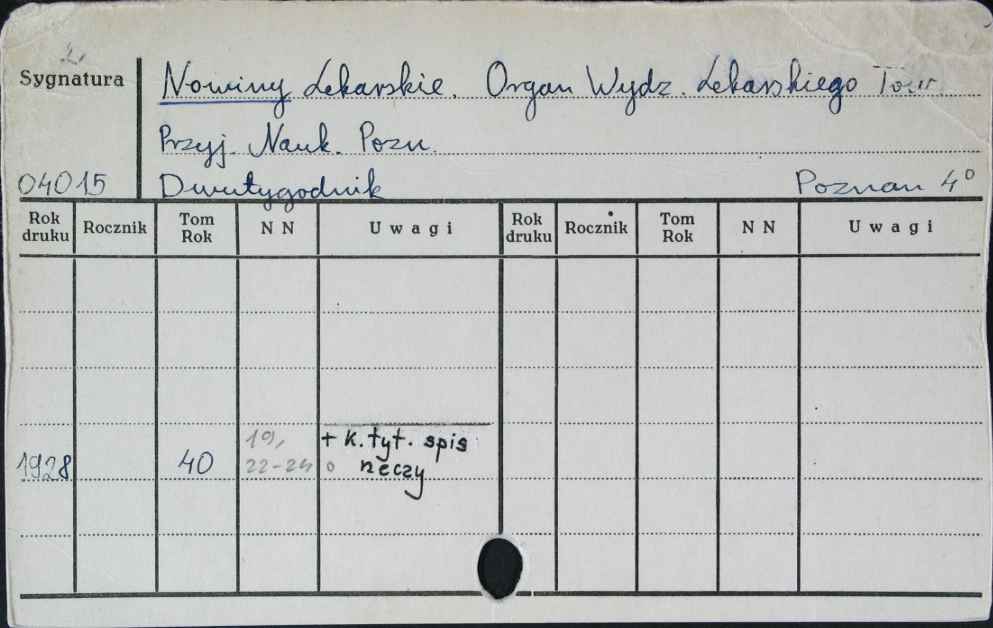 2,
Sygnatura Nowiny Lekarskie. Organ Wydz. Lekarskiego Tow.
Przyj. Nauk. Pozn.
04015 Dwutygodnik Poznan 4°
Rok druku Rocznik Tom Rok NN Uwagi Rok druku Rocznik Tom Rok NN Uwagi
19, + k. tyt. spis
1928 40 22-24 rzeczy